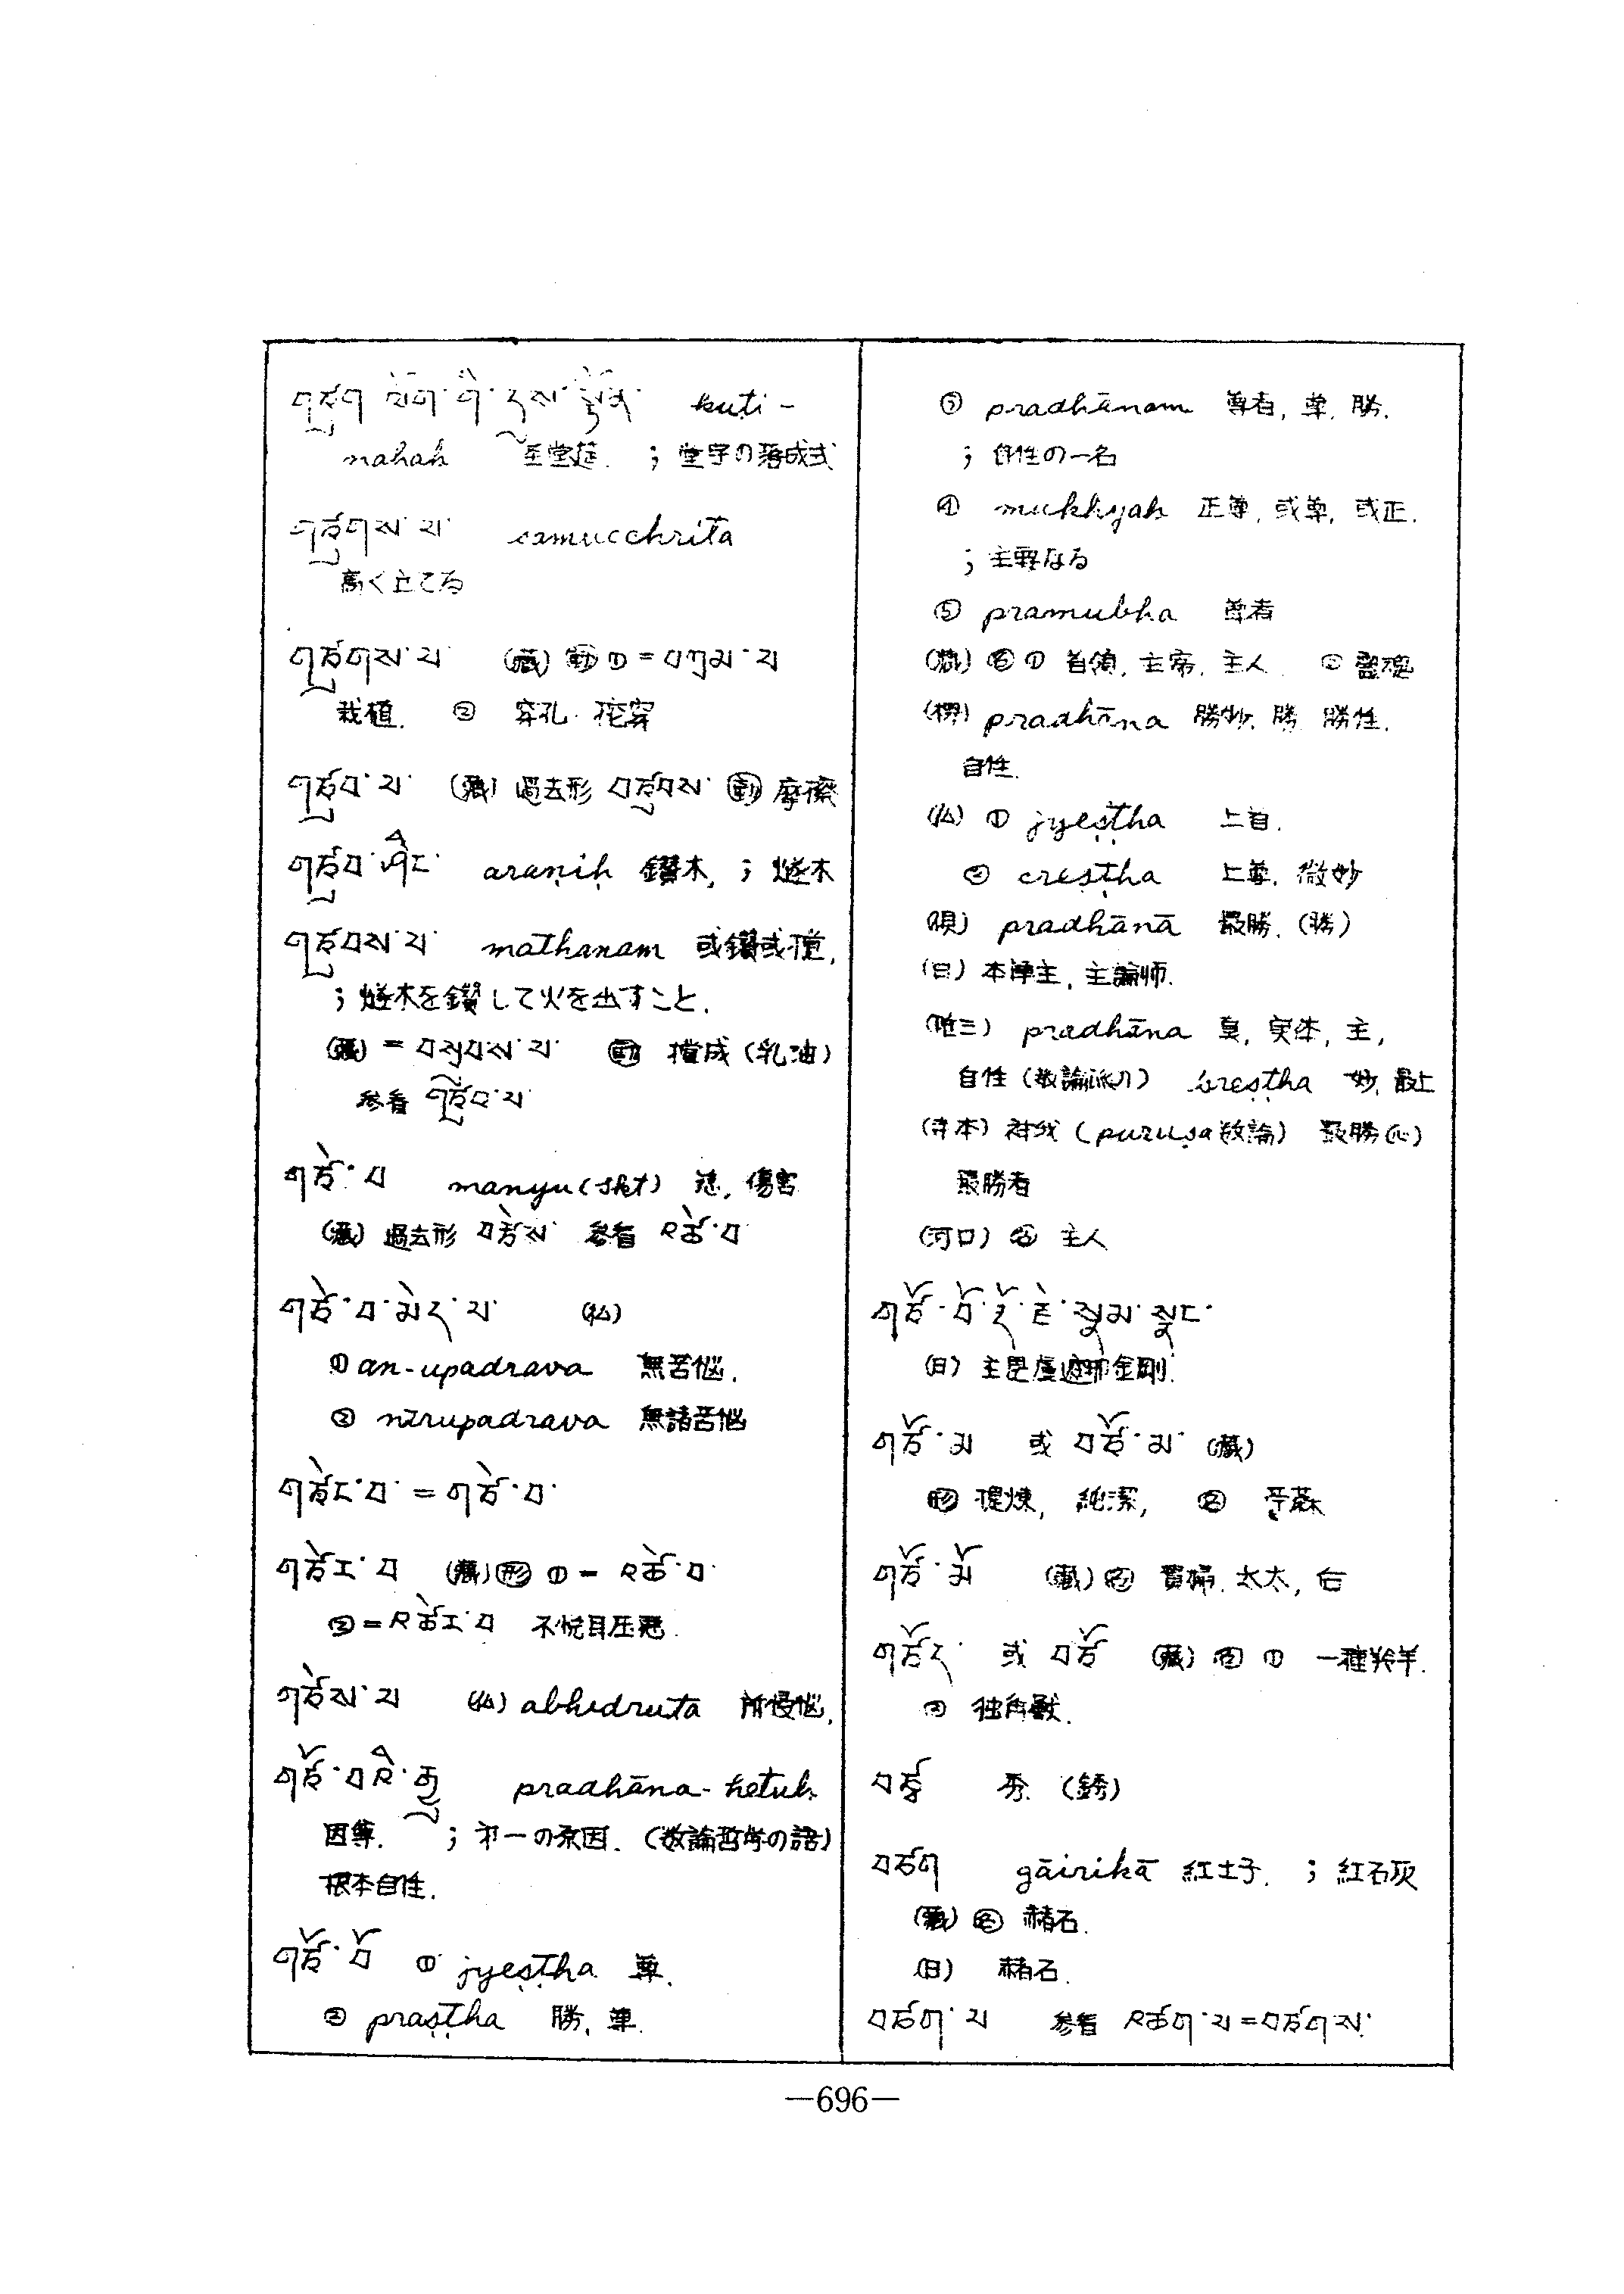 གཙུག ལག་གི་དུས་སྟོན་ kuṭi-
mahaḥ 至堂莚. ; 堂宇の落成式
གཙུགས་པ་ samucchrita
高く立てる
གཙུགས་པ་ (藏) 動 ① =
栽植. ② 穿孔. 挖穿
གཙུབ་པ་ (藏) 過去形 བཙུབས་ 動 摩擦
གཙུབ་ཤིང་ araṇiḥ 鑽木, ; 燧木
གཙུབས་པ་ mathanam 或鑽或
; 燧木を鑽して火を出すこと.
(藏) = བསུབས་པ་ 動 攪成 (乳油)
参看
གཙེ་བ manyu (skt) 恚, 傷害
(藏) 過去形 བཙེས་ 参看 འཚེ་བ
གཙེ་བ་མེད་པ་ (仏)
① an-upadrava 無苦惱.
② nirupadrava 無諸苦惱
གཙེང་བ་ = གཙེ་བ་
གཙེར་བ (藏) 形 ① = འཚེ་བ་
② = འཚེར་བ 不悦目
གཙེས་པ (仏) abhidruta 所侵惱.
གཙོ་བའི་རྒྱུ pradhāna-hetuḥ
因尊. ; 才一の原因. (数論哲学の語)
根本自性.
གཙོ་བོ ① jyeṣṭha 尊.
② praṣṭha 勝, 尊.
③ pradhānam 尊者, 尊, 勝.
; 自性の一名
④ mukhyaḥ 正尊, 或尊, 或正.
; 主要なる
⑤ pramukha 尊者
(藏) 名 ① 首領, 主席, 主人 ② 靈魂
(榊) pradhāna 勝妙, 勝 勝性.
自性.
(仏) ① jyeṣṭha 上首.
② çreṣṭha 上尊, 微妙
pradhānā 最勝. (勝)
(日) 本尊主, 主論师.
(唯三) pradhāna 臭, 実体, 主,
自性 (数論派ノ) śreṣṭha 妙, 最上
(寺本) 神我 (puruṣa 数論) 最勝 (心)
最勝者
(河口) 名 主人
གཙོ་བོ་རྡོ་རྗེ་སྣམ་སྣང་
(日) 主毘盧遮那金剛.
གཙོ་མ 或 བཙོ་མ་ (藏)
形 提煉, 純潔, 名 芋蔴
གཙོ་མོ (藏) 名 貴婦. 太太, 后
གཙོད་ 或 བཙོ (藏) 名 ① 一種羚羊.
② 独角獸.
秀. (銹)
བཙག gāirikā 紅土子. ; 紅石灰
(藏) 名 赭石.
(日) 赭石.
བཙག་པ 参看 འཚག་པ = བཙགས་
—696—